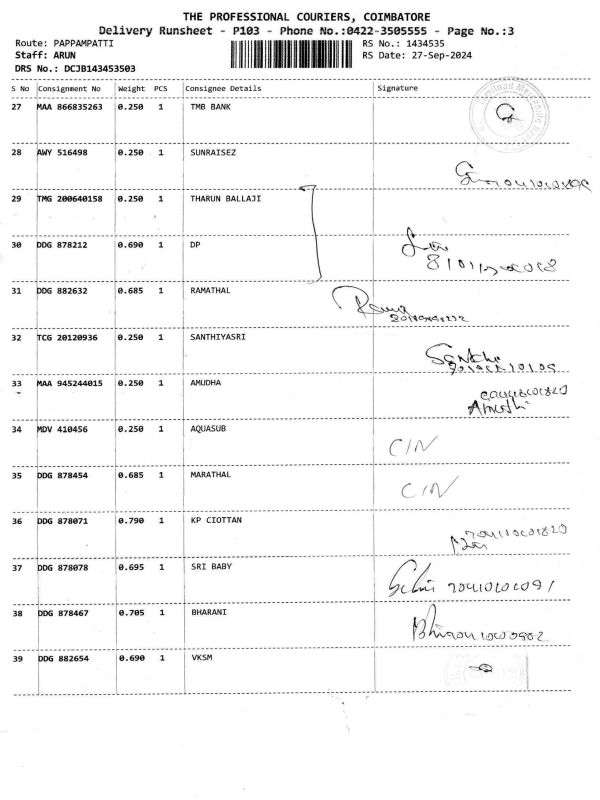 THE PROFESSIONAL COURIERS, COIMBATORE
Delivery Runsheet - P103 - Phone No.:0422-3505555 - Page No.:3
Route: PAPPAMPATTI RS No.: 1434535
Staff: ARUN RS Date: 27-Sep-2024
DRS No.: DCJB143453503
S No Consignment No Weight PCS Consignee Details Signature
27 MAA 866835263 0.250 1 TMB BANK
28 AWY 516498 0.250 1 SUNRAISEZ
29 TMG 200640158 0.250 1 THARUN BALLAJI
30 DDG 878212 0.690 1 DP
31 DDG 882632 0.685 1 RAMATHAL
32 TCG 20120936 0.250 1 SANTHIYASRI
33 MAA 945244015 0.250 1 AMUDHA
34 MDV 410456 0.250 1 AQUASUB CIN
35 DDG 878454 0.685 1 MARATHAL CIN
36 DDG 878071 0.790 1 KP CIOTTAN
37 DDG 878078 0.695 1 SRI BABY
38 DDG 878467 0.705 1 BHARANI
39 DDG 882654 0.690 1 VKSM